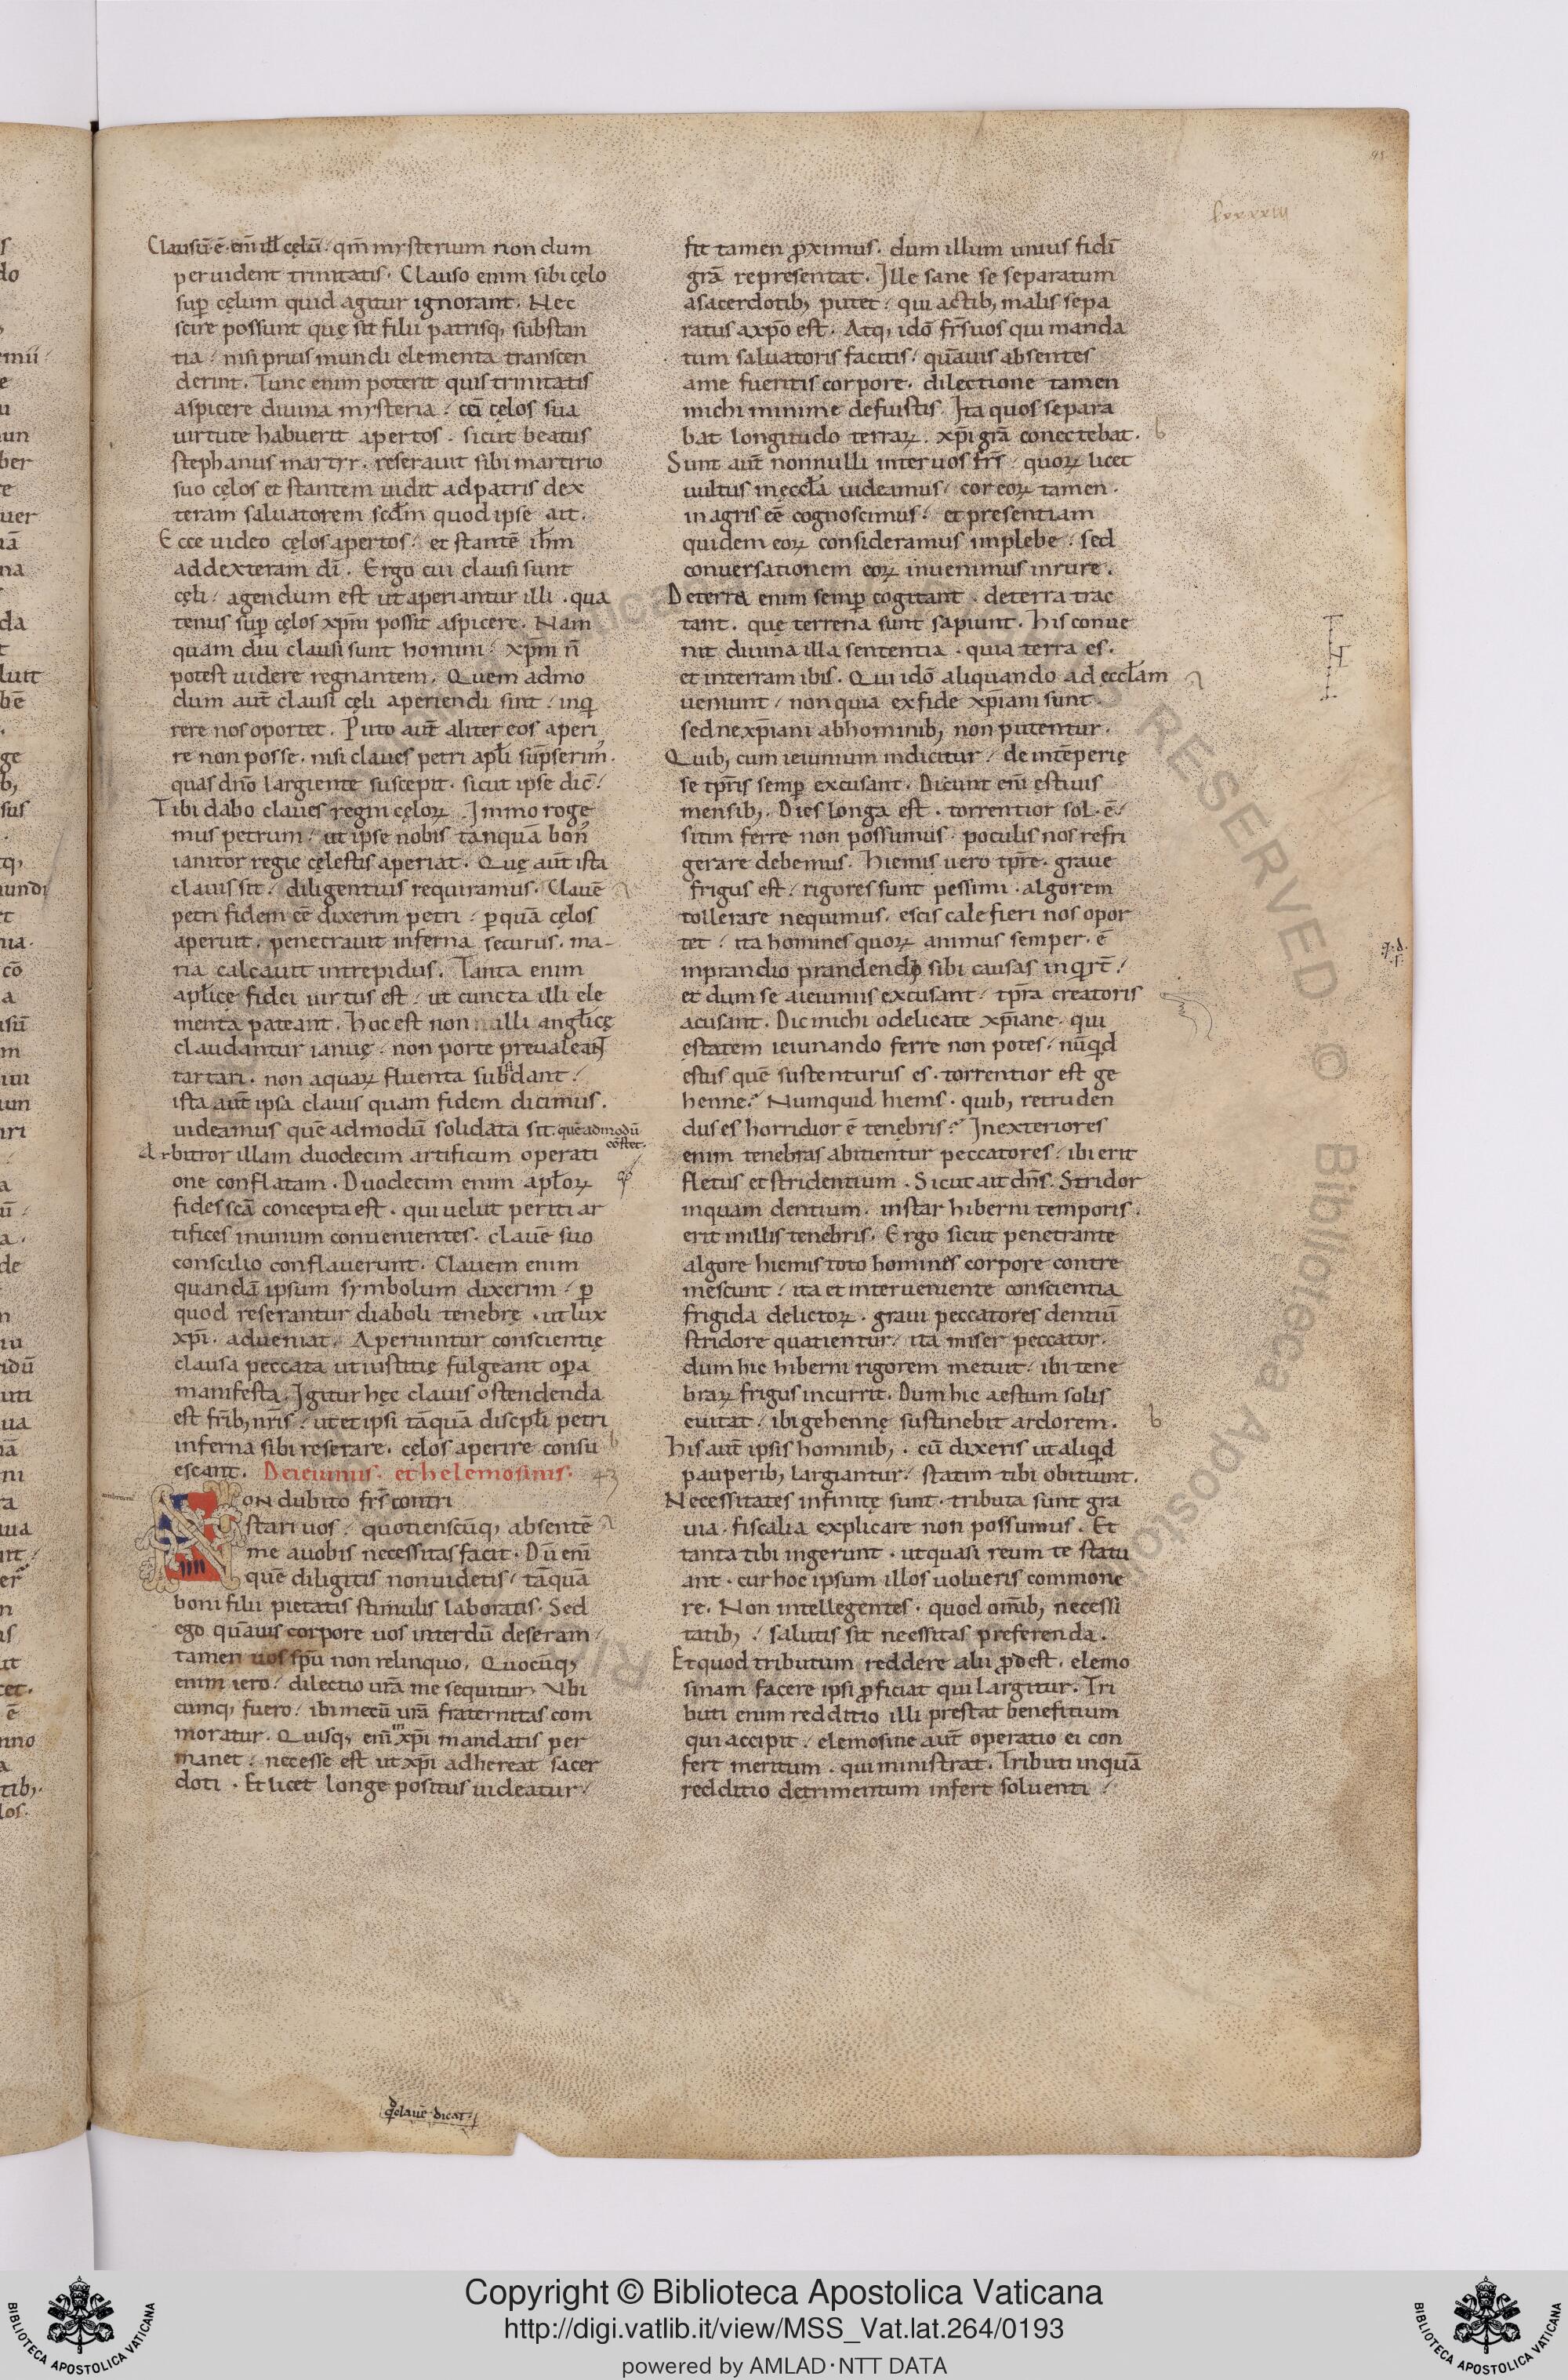 91
lxxxxiii
Clausū·ē·em̄ ill̄ cęlū· qm̄ mysterium non dum
peruident trinitatis· Clauso enim sibi cęlo
sup̄ cęlum quid agitur ignorant· Nec
scire possunt quę sit filii patrisq; substan
tia / nisi prius mundi elementa transcen
derint. Tunc enim poterit quis trinitatis
aspicere diuina mysteria / cū cęlos sua
uirtute habuerit apertos · sicut beatus
stephanus martyr· reserauit sibi martirio
suo cęlos et stantem uidit ad patris dex
teram saluatorem scd̄m quod ipse ait·
Ecce uideo cęlos apertos / et stantē ih̄m
ad dexteram dī. Ergo cui clausi sunt
cęli / agendum est ut aperiantur illi · qua
tenus sup̄ cęlos xp̄m possit aspicere· Nam
quam diu clausi sunt homini / xp̄m n̄
potest uidere regnantem· Quem admo
dum aut̄ clausi cęli aperiendi sint / inq̄
rere nos oportet. Puto aut̄ aliter eos aperi
re non posse· nisi claues petri apl̄i sūpserim·
quas dn̄o largiente suscepit· sicut ipse dic̄ /
Tibi dabo claues regni cęloꝝ· Immo roge
mus petrum / ut ipse nobis tanquā bon̄
ianitor regię cęlestis aperiat· Quę aut̄ ista
clauis sit / diligentius requiramus· Clauē
petri fidem eē dixerim petri / p̄ quā cęlos
aperuit· penetrauit inferna securus· ma-
ria calcauit intrepidus. Tanta enim
apl̄icę fidei uirtus est / ut cuncta illi ele
menta pateant· Hoc est non illi angl̄icę
claudantur ianuę · non porte preualeant
tartari· non aquaꝝ fluenta subn̄dant /
ista aut̄ ipsa clauis quam fidem dicimus·
uideamus quē admodū solidata sit· quē admodū
cōstet·
Arbitror illam duodecim artificum operati
one conflatam· Duodecim enim apl̄oꝝ
fide sc̄ā concepta est· qui uelut periti ar
tifices in unum conuenientes· clauē suo
conscilio conflauerunt· Clauem enim
quandā ipsum symbolum dixerim / p̄
quod reserantur diaboli tenebrę · ut lux
xp̄i· adueniat / Aperiuntur conscientię
clausa peccata ut iustitię fulgeant op̄a
manifesta· Igitur hęc clauis ostendenda
est fr̄ib; nr̄is / ut et ipsi tāquā discpl̄i petri
inferna sibi reserare· cęlos aperire consu
escant. De ieiuniis· et helemosinis· 43
NoN dubito fr̄s contri
stari uos / quotienscūq; absentē
me a uobis necessitas facit· Dū em̄
quē diligitis non uidetis / tāquā
boni filii pietatis stimulis laboratis· Sed
ego quāuis corpore uos interdū deseram /
tamen uos sp̄u non relinquo· Quocūq;
enim iero / dilectio ur̄a me sequitur· Vbi
cumq; fuero / ibi mecū ur̄a fraternitas com
moratur· Quisq; em̄ xp̄i mandatis per
manet / necesse est ut xp̄i adhereat sacer
doti · Et licet longe positus uideatur /
fit tamen p̄ximus· dum illum unius fidī
grā representat· Ille sane se separatum
a sacerdotib; putet / qui actib; malis sepa
ratus a xp̄o est· Atq; idō fr̄s uos qui manda
tum saluatoris facitis / quāuis absentes
a me fueritis corpore· dilectione tamen
michi minime defuistis· Ita quos separa
bat longitudo terraꝝ· xp̄i grā conectebat· b
Sunt aut̄ nonnulli inter uos fr̄s / quoꝝ licet
uultus in ęccl̄a uideamus / cor eoꝝ tamen·
in agris eē cognoscimus / et presentiam
quidem eoꝝ consideramus in plebe / sed
conuersationem eoꝝ inuenimus in rure·
De terra enim semp̄ cogitant · de terra trac
tant· quę terrena sunt sapiunt· His conue
nit diuina illa sententia · quia terra es·
et in terram ibis· Qui idō aliquando ad eccl̄am
ueniunt / non quia ex fide xp̄iani sunt·
sed ne xp̄iani ab hominib; non putentur·
Quib; cum ieiunium indicitur / de intēperię
se tp̄ris semp̄ excusant· Dicunt em̄ estiuis
mensib;· Dies longa est · torrentior sol·ē /
sitim ferre non possumus· poculis nos refri
gerare debemus· Hiemis uero tp̄re· graue
frigus est / rigores sunt pessimi · algorem
tollerare nequimus· escis calefieri nos opor
tet / ita homines quoꝝ animus semper·ē
in prandio prandendi sibi causas inq̄rt̄ /
et dum se a ieiuniis excusant / tp̄ra creatoris
acusant· Dic michi o delicate xp̄iane· qui
estatem ieiunando ferre non potes / nūq̄d
estus quē sustenturus es · torrentior est ge
henne? Numquid hiems · quib; retruden
dus es horridior ē tenebris? In exteriores
enim tenebras abitientur peccatores / ibi erit
fletus et stridentium· Sicut ait dn̄s· Stridor
inquam dentium· instar hiberni temporis·
erit in illis tenebris· Ergo sicut penetrante
algore hiemis toto homines corpore contre
mescunt / ita et interueniente conscientia
frigida delictoꝝ · graui peccatores dentiū
stridore quatientur / ita miser peccator·
dum hic hiberni rigorem metuit / ibi tene
braꝝ frigus incurrit· Dum hic aestum solis
euitat / ibi gehennę sustinebit ardorem· b
His aut̄ ipsis hominib; · cū dixeris ut aliq̄d
pauperib; largiantur / statim tibi obituunt·
Necessitates infinitę sunt · tributa sunt gra
uia · fiscalia explicare non possumus· Et
tanta tibi ingerunt · ut quasi reum te statu
ant · cur hoc ipsum illos uolueris commone
re· Non intellegentes · quod om̄ib; necessi
tatib; / salutis sit necessitas preferenda·
Et quod tributum reddere alii p̄dest · elemo
sinam facere ipsi p̄ficiat qui largitur· Tri
buti enim redditio illi prestat benefitium
qui accipit / elemosine aut̄ operatio ei con
fert meritum · qui ministrat· Tributi inquā
redditio detrimentum infert soluenti /
q̄ clauē dicat
Copyright © Biblioteca Apostolica Vaticana
http://digi.vatlib.it/view/MSS_Vat.lat.264/0193
powered by AMLAD·NTT DATA
BIBLIOTECA APOSTOLICA VATICANA
BIBLIOTECA APOSTOLICA VATICANA